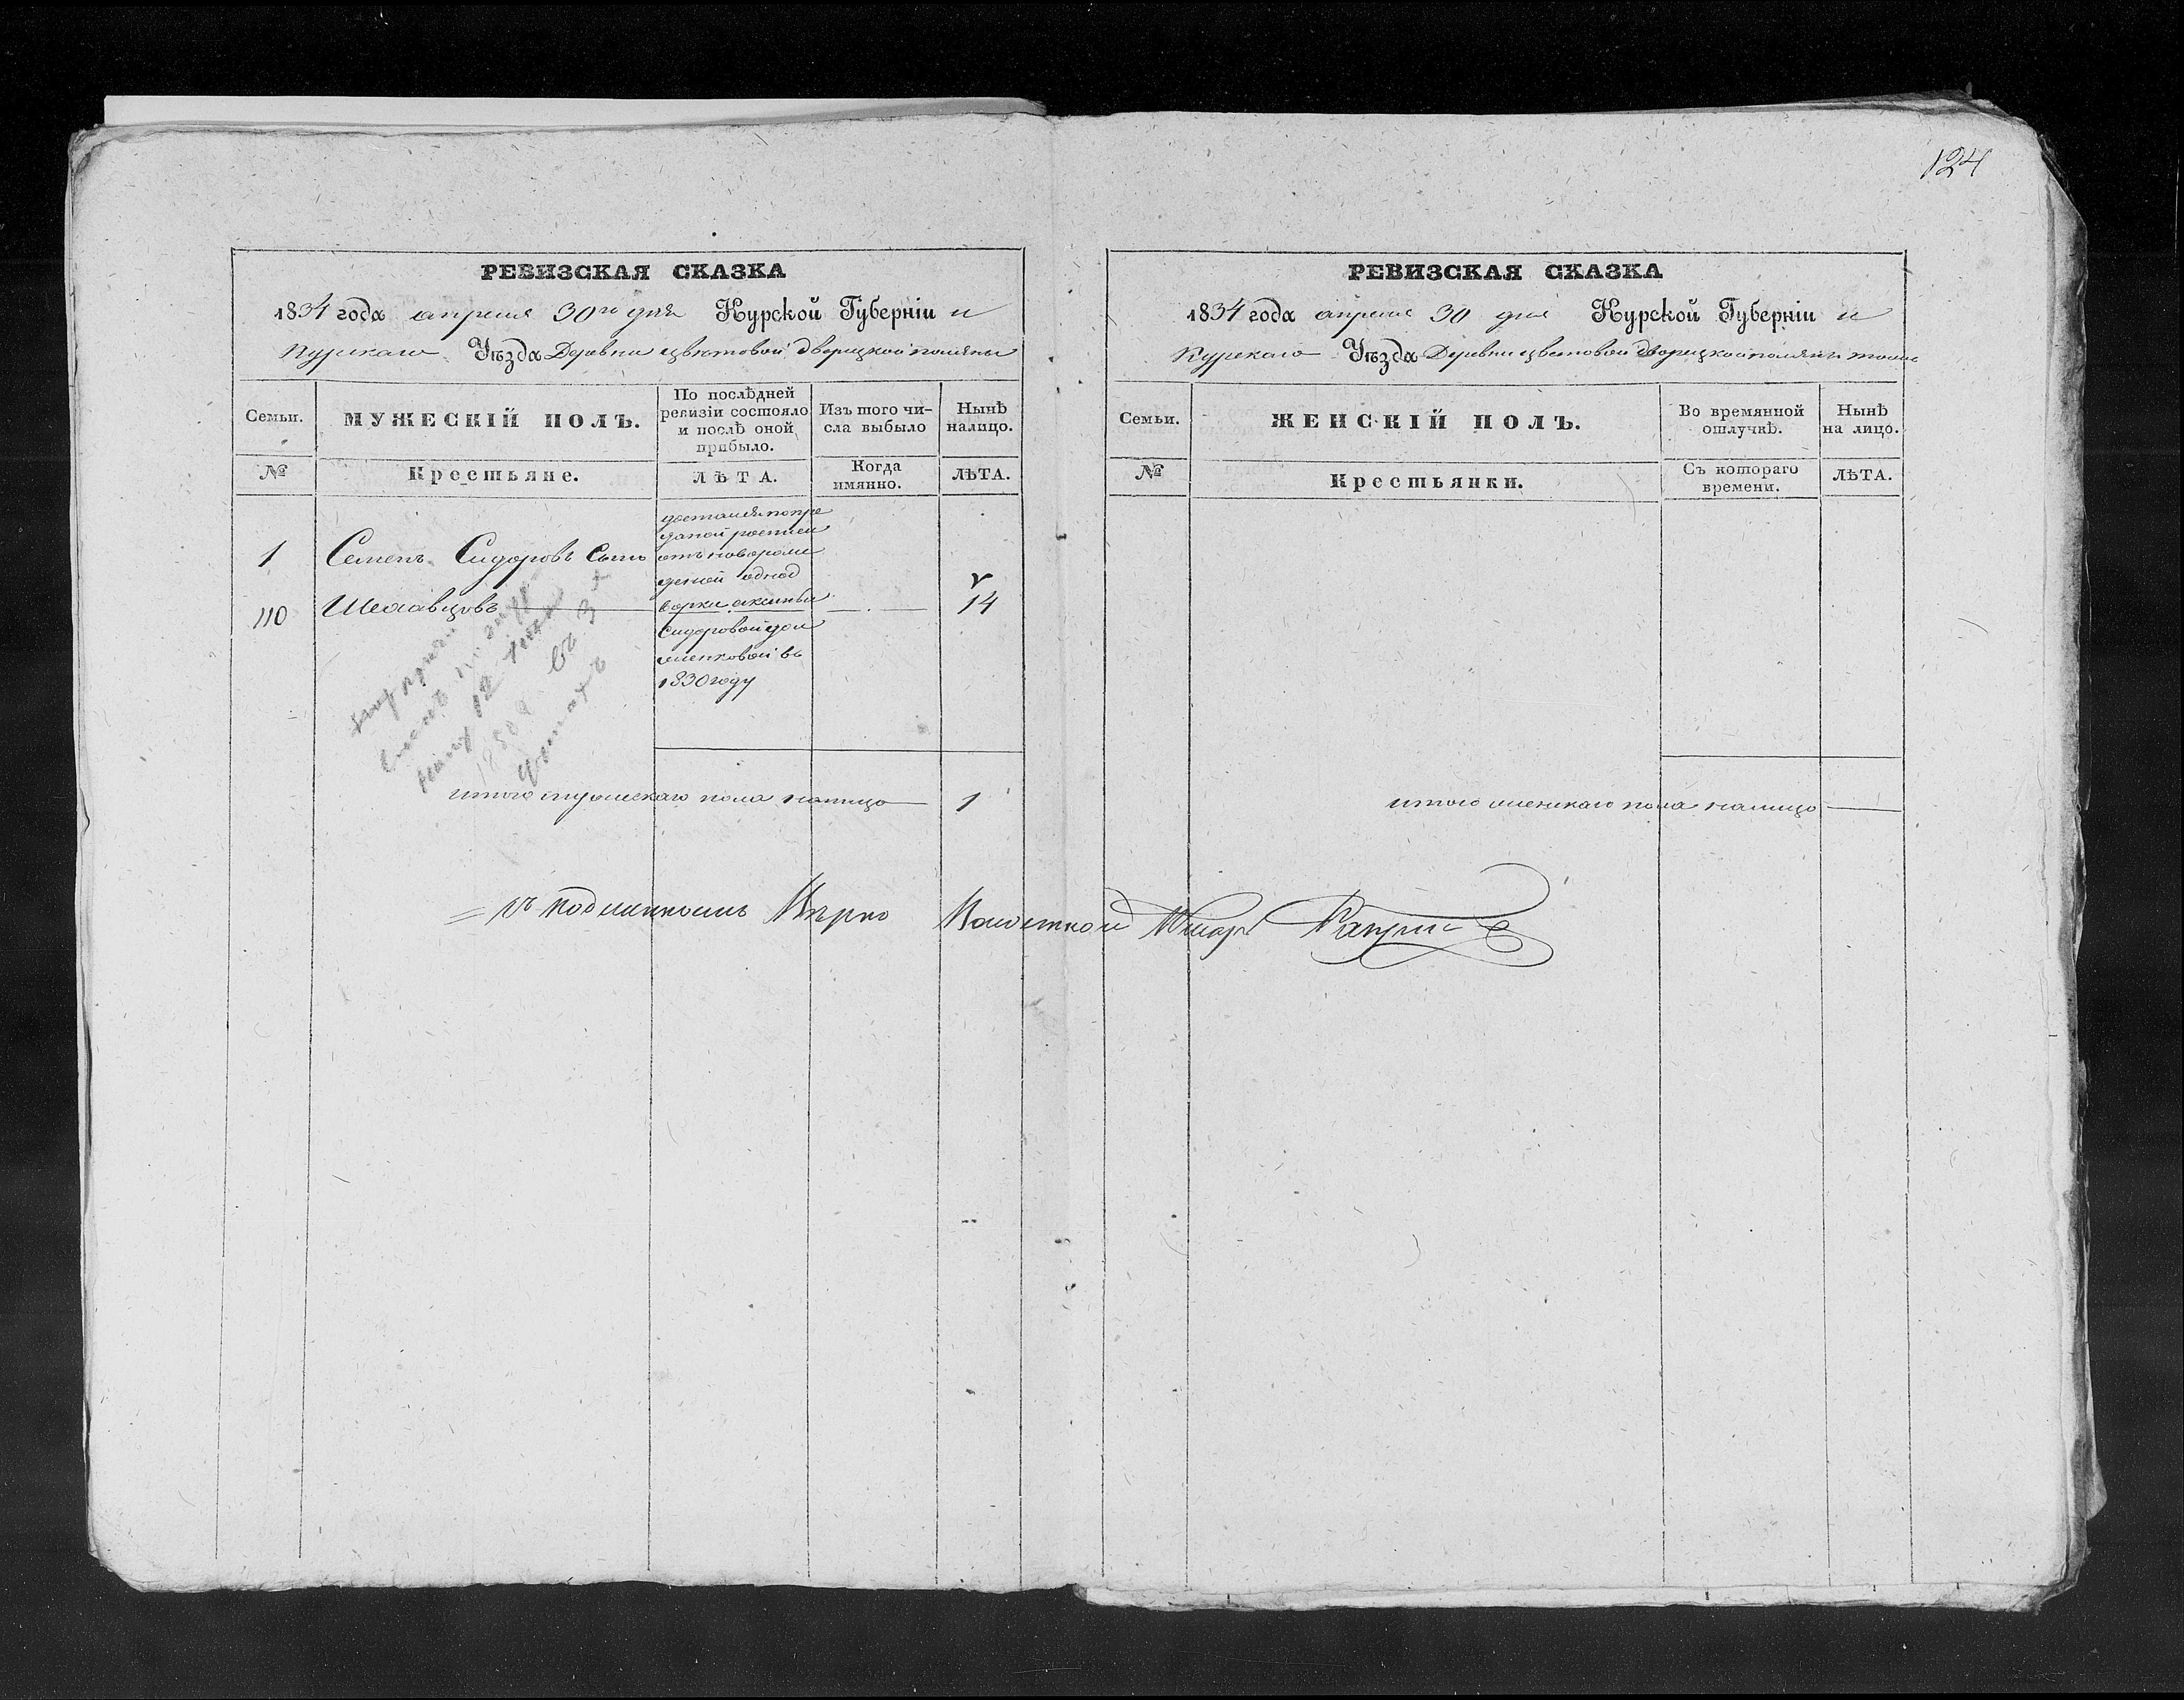 124
РЕВИЗСКАЯ СКАЗКА
1834 года апреля 30го дня Курской Губерніи и
Курскаго Уѣзда Деревни цветовой дворецкой поляны
Семьи.
МУЖЕСКІЙ ПОЛЪ.
По послѣдней
ревизіи состояло
и послѣ оной
прибыло.
Изъ того чи-
сла выбыло
Нынѣ
налицо.
№
Крестьяне.
ЛѢТА.
Когда
имянно.
ЛѢТА.
1
110
Семенъ Сидоровъ сынъ
Шелавцовъ
достался по
отъ
однод
ворки аксиньи
Сидоровой
въ
1830 году
14
итого мужескаго пола налицо 1
РЕВИЗСКАЯ СКАЗКА
1834 года апреля 30 дня Курской Губерніи и
Курскаго Уѣзда Деревни цветовой дворецкой поляны тожъ
Семьи.
ЖЕНСКІЙ ПОЛЪ.
Во времянной
отлучкѣ.
Нынѣ
на лицо.
№
Крестьянки.
Съ котораго
времени.
ЛѢТА.
итого женскаго пола налицо
съ подлиннымъ Вѣрно